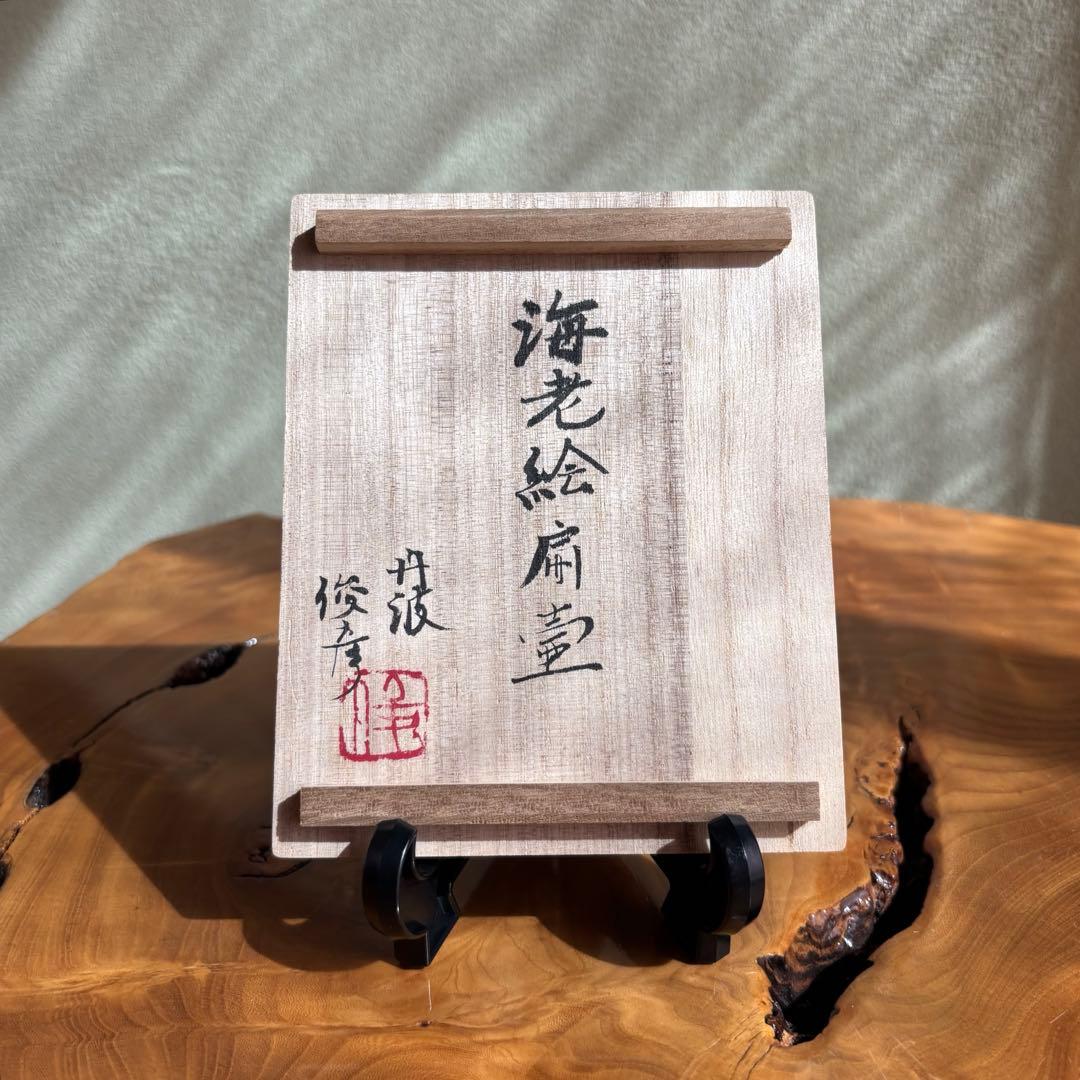 海老絵扁壷
丹波
俊彦